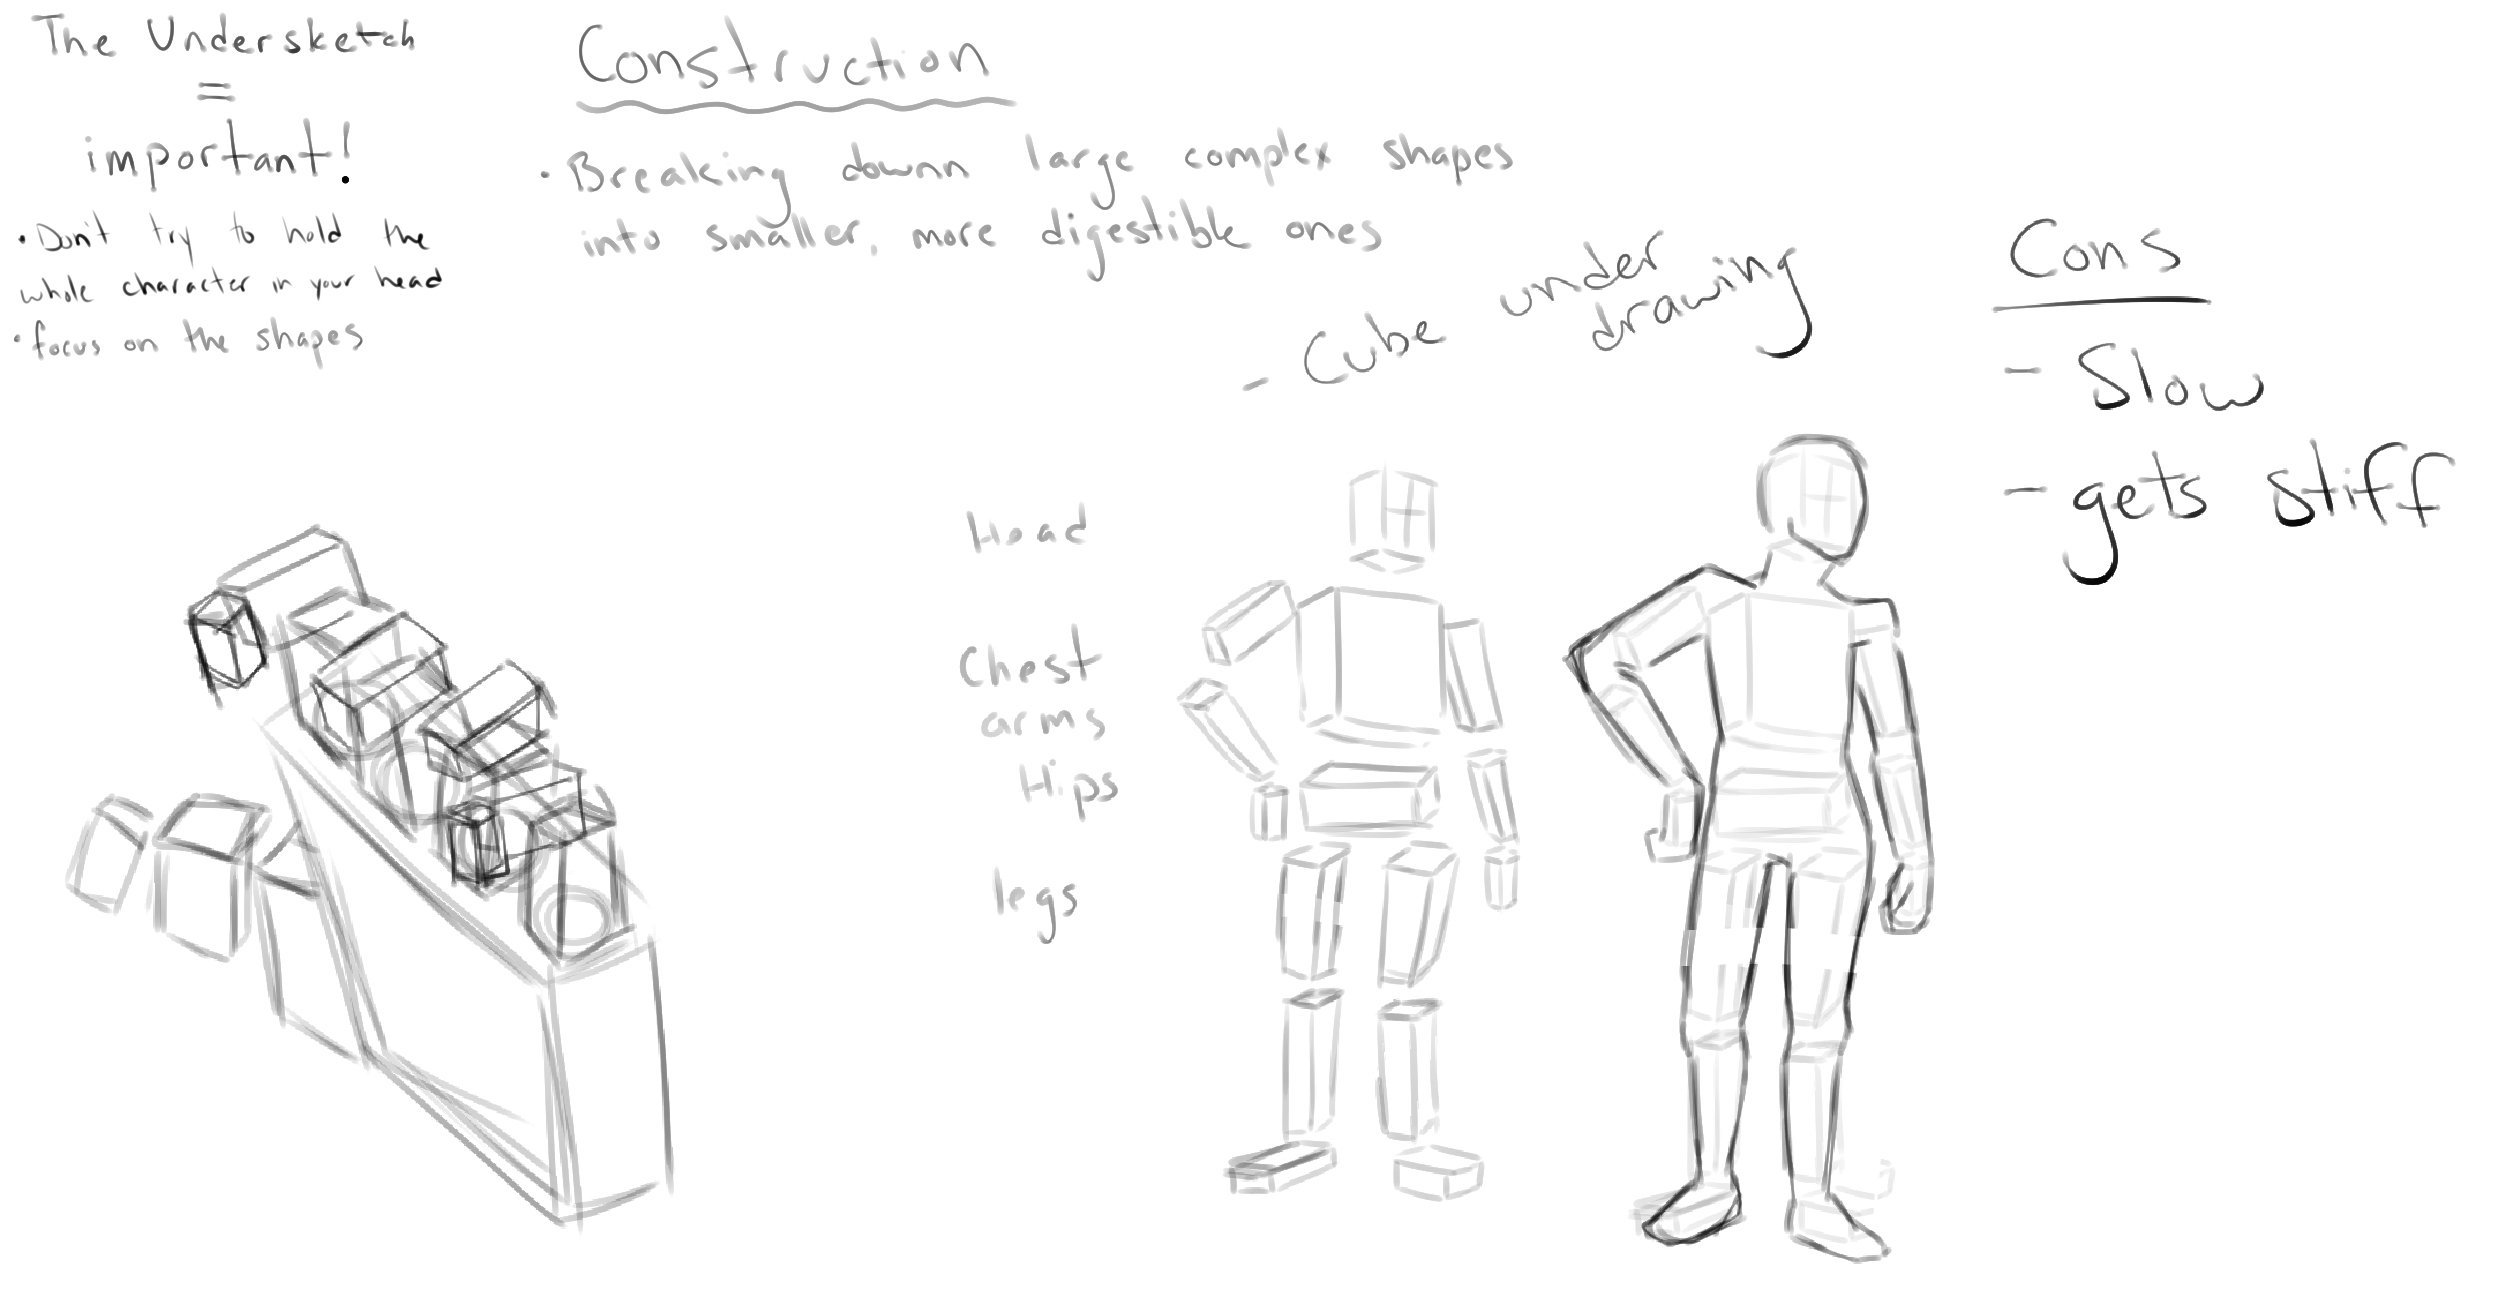 The Undersketch
=
important!
• Don't try to hold the
whole character in your head
• focus on the shapes
Construction
• Breaking down large complex shapes
into smaller, more digestible ones
- Cube under
drawing
Cons
- Slow
- gets stiff
Head
Chest
arms
Hips
legs